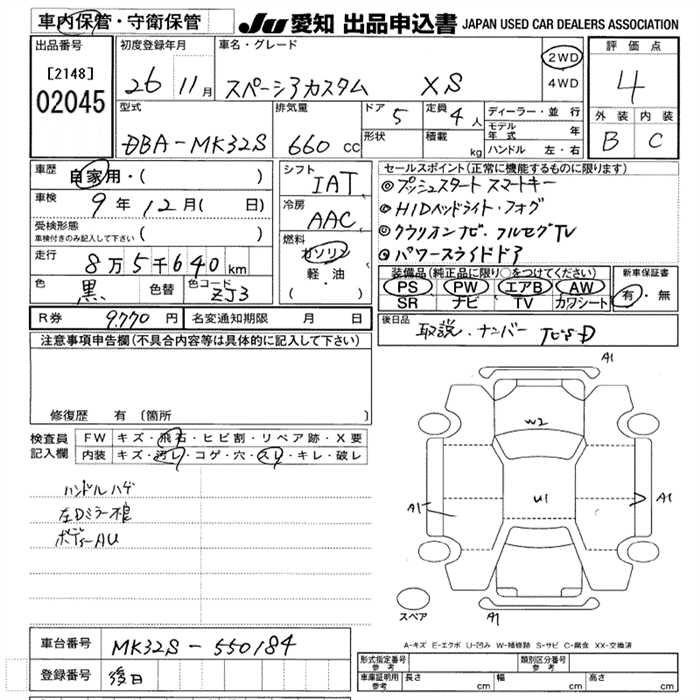 車内保管・守衛保管 JU 愛知 出品申込書 JAPAN USED CAR DEALERS ASSOCIATION
出品番号 初度登録年月 車名・グレード 評価点
[2148] 26 11月 スペーシアカスタム XS 2WD 4
02045 4WD
型式 排気量 ドア 5 定員 4人 ディーラー・並行 外装 内装
DBA-MK32S 660 cc 形状 積載 kg モデル年式 年 B C
ハンドル 左・右
車歴 自家用・( ) シフト IAT セールスポイント(正常に機能するものに限ります)
車検 9年 12月( 日) 冷房 AAC ◎プッシュスタート スマートキー
受検形態 ( ) ◎HIDヘッドライト・フォグ
車検付きのみ記入して下さい
走行 8万5千640km 燃料 ガソリン ◎クラリオンナビ・フルセグTV
軽・油 ◎パワースライドドア
色 黒 色替 色コード ZJ3 (・)
装備品(純正品に限り○をつけてください) 新車保証書
PS PW エアB AW 有・無
SR ナビ TV カワシート
R券 9,770円 名変通知期限 月 日 後日品 取説、ナンバー
注意事項申告欄(不具合内容等は具体的に記入して下さい)
修復歴 有 (箇所
検査員記入欄 FW キズ・飛石・ヒビ割・リペア跡・X要
内装 キズ・汚レ・コゲ・穴・スレ・キレ・破レ
ハンドルハゲ
左Dミラー不良
ボディーAU
A1
W2
A1 U1 A1
スペア A1
A-キズ E-エクボ U-凹み W-補修跡 S-サビ C-腐食 XX-交換済
車台番号 MK32S-550184
登録番号 後日
形式指定番号 参考 類別区分番号 参考
車庫証明用 参考 長さ cm 幅 cm 高さ cm